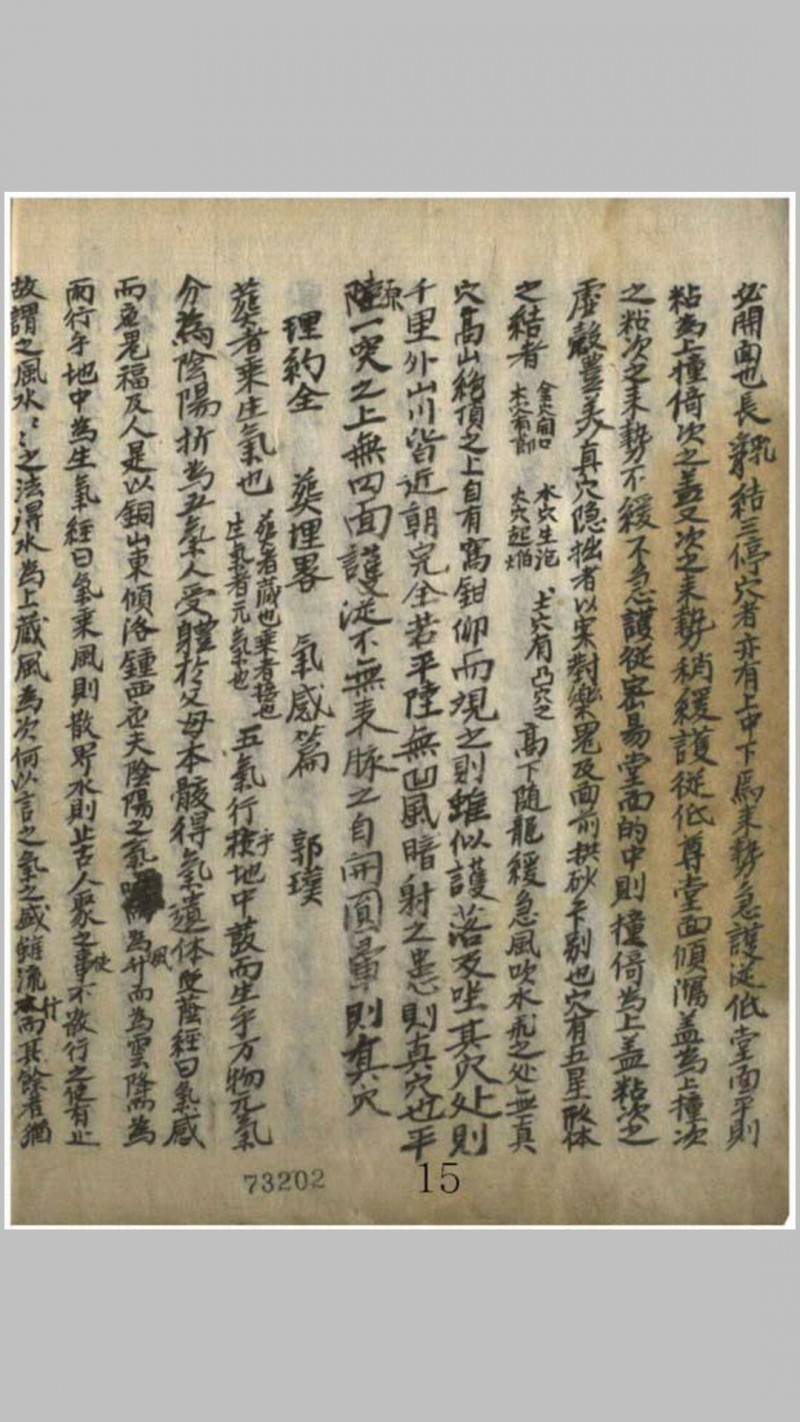 必開面也長乳結三停穴者亦有上中下焉来勢急護从低堂面平則
粘為上撞倚次之盖又次之来勢稍緩護从低尊堂面傾瀉盖為上撞次
之粘次之来勢不緩不急護從密昜堂面的中則撞倚為上盖粘次之
虛縠豊美真穴隐拙者以案對樂鬼及面前拱砂卞别也穴有五星敀体
之結者 金穴開口 木穴有節 水穴生泡 火穴起焰 土穴有凸穴之 高下随龍緩急風吹水飛之处無真
穴高山絶頂之上自有窩鉗仰而現之則雖似護落及坐其穴处則
千里外山川皆近朝完全若平陸無凹風暗射之患則真穴也平
原陸一突之上無四面護从不無来脉之自開圓暈則有真穴
理約全 葬埋畧 氣感篇 郭璞
葬者乘生氣也 葬者蔵也乘者接也 生氣者元氣也 五氣行乎地中葐而生乎万物元氣
分為陰陽折為五氣人受體於父母本骸得氣遺体受蔭經曰氣感
而应鬼福及人是以銅山東傾洛鍾西应夫陰陽之氣噫為風升而為雲降而為
雨行乎地中為生氣經曰氣乘風則散界水則止古人聚之使不散行之使有止
故謂之風水〻〻之法得水為上蔵風為次何以言之氣之盛雖流行而其餘者猶
73202
15